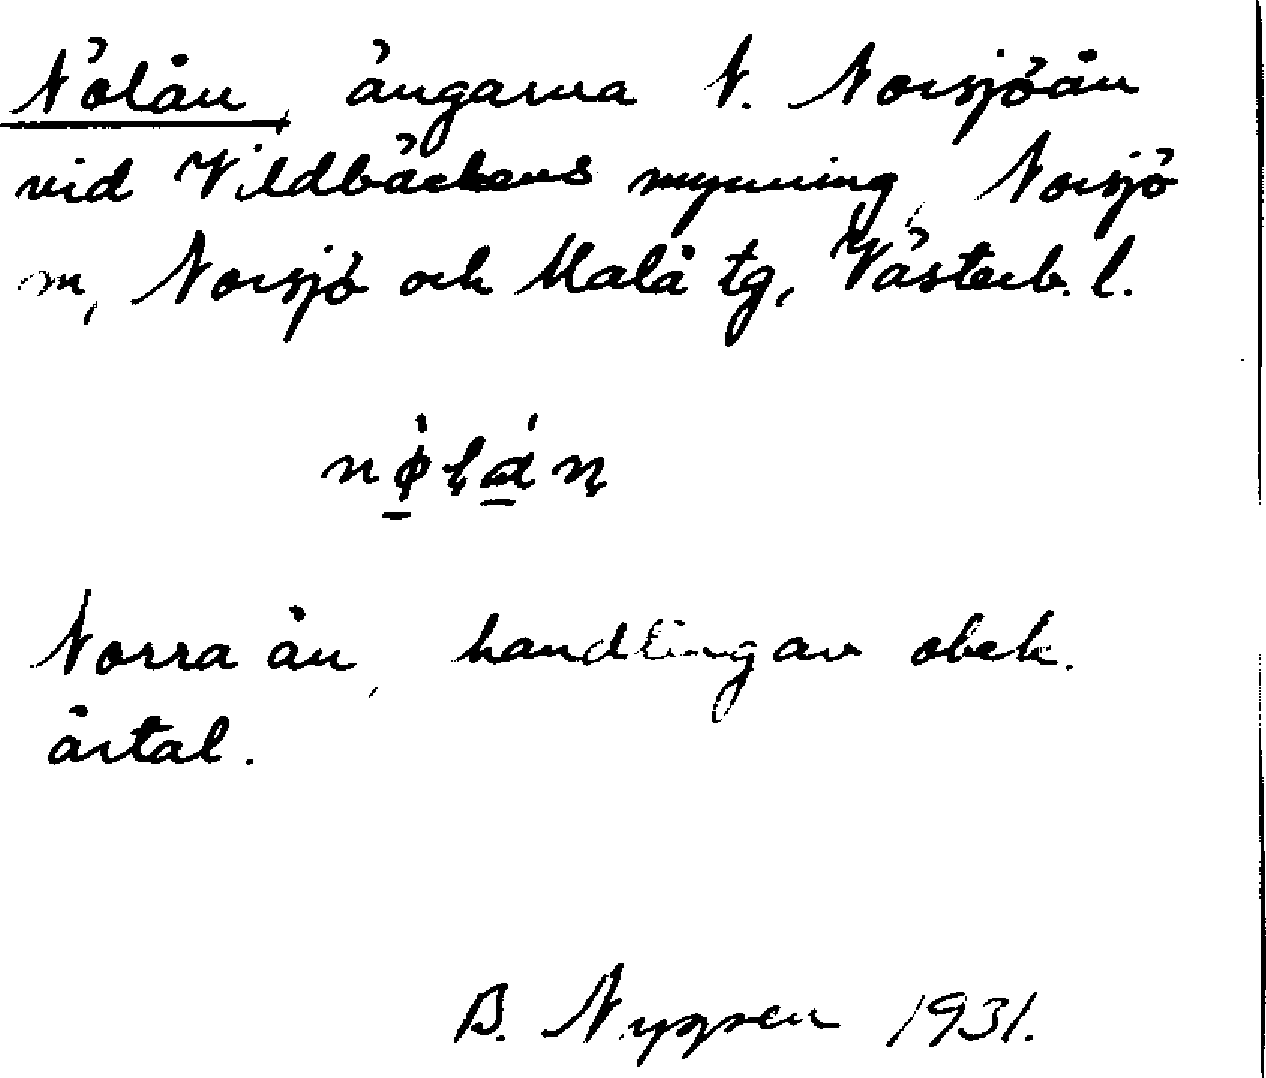 Nölån, ängarna N. Norsjöån
vid Vildbäckens mynning, Norsjö
sn, Norsjö och Malå tg, Västerb. l.
Norra ån, handling av obek.
årtal.
B. Nygren 1931.